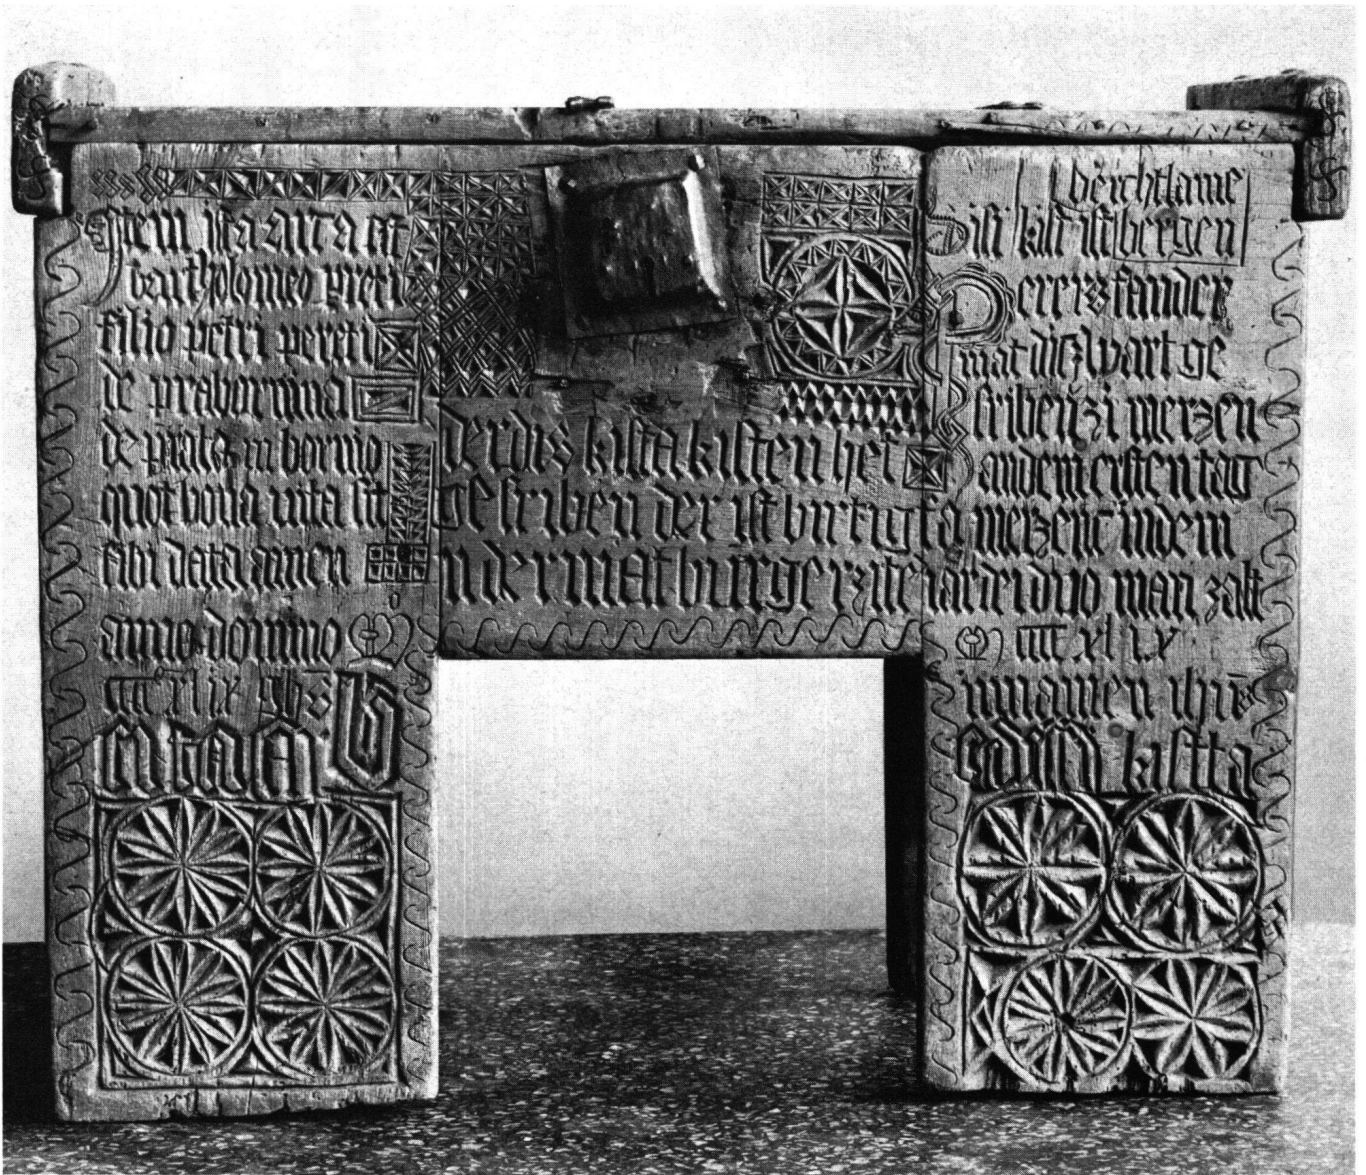 Item ista arca est
bartholomeo preti
filio petri pereti
de
de in bormio
quot bona uita sit
sibi data amen
anno domino M
iiii xl ix ihs
der dis kista kisten het
ge sriben der ist burtug
n der mat burger ze
berchtlame
disi kist ist bergen
Pereiz fander
mat disz wart ge
sriben zi merzen
an dem ersten tag
merzenc in dem
iar dei duo man zalt
M iiii xl ix
in namen ihu
kistta